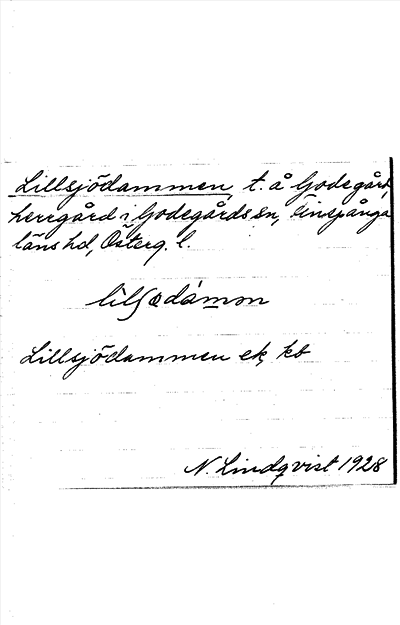 Lillsjödammen, t. å Godegård,
herrgård i Godegårds sn, Finspånga
läns hd, Österg. l.
lìlʃødámən
Lillsjödammen ek, kb
N. Lindqvist 1928